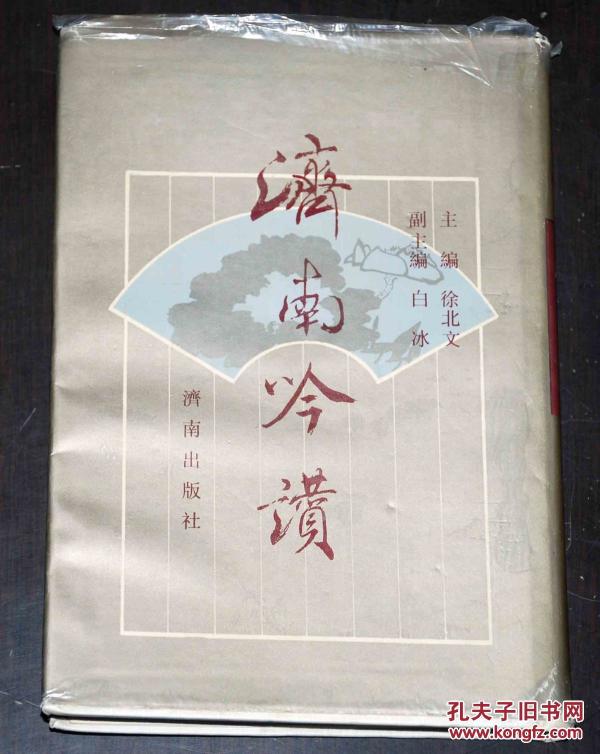 濟南吟讚
主編 徐北文
副主編 白冰
濟南出版社
孔夫子旧书网
www.kongfz.com